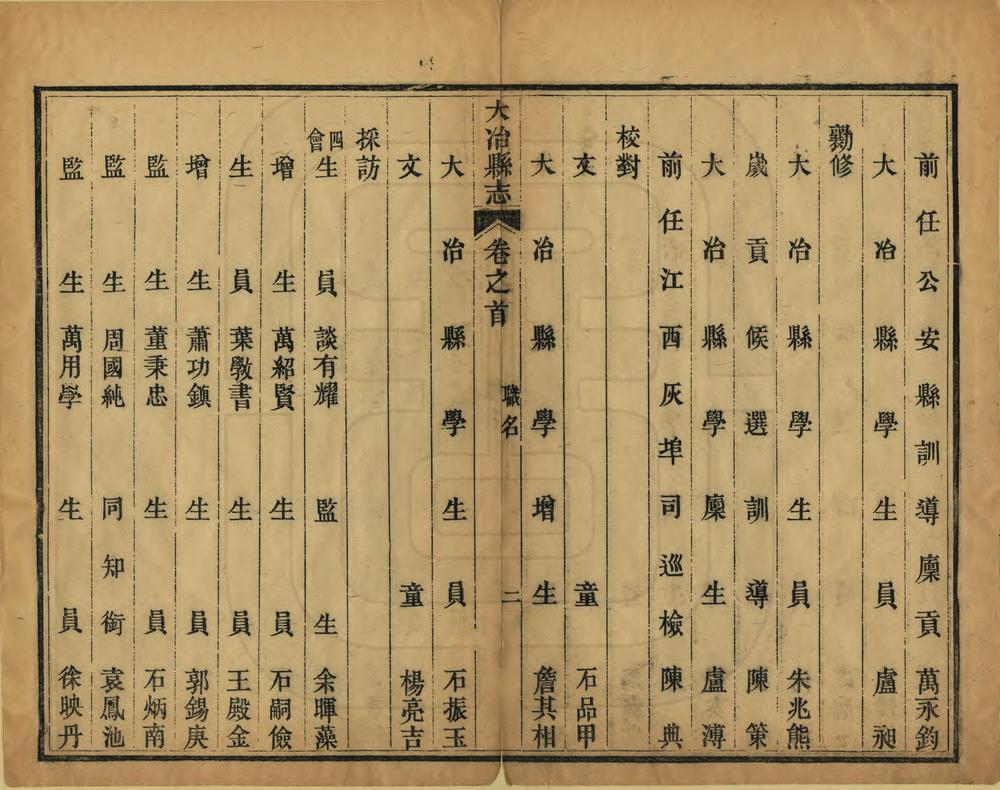 前任公安縣訓導廩貢萬永鈞
大冶縣學生員盧昶
勷修
大冶縣學生員朱兆熊
歲貢候選訓導陳策
大冶縣學廩生盧溥
前任江西灰埠司巡檢陳典
校對
文童石品甲
大冶縣學增生詹其相
大冶縣志 卷之首 職名 二
大冶縣學生員石振玉
文童楊亮吉
採訪
四會生員談有耀 監生余暉藻
增生萬紹賢 生員石嗣儉
生員葉斆書 生員王殿金
增生蕭功鎮 生員郭錫庚
監生董秉忠 生員石炳南
監生周國純 同知銜袁鳳池
監生萬用學 生員徐映丹